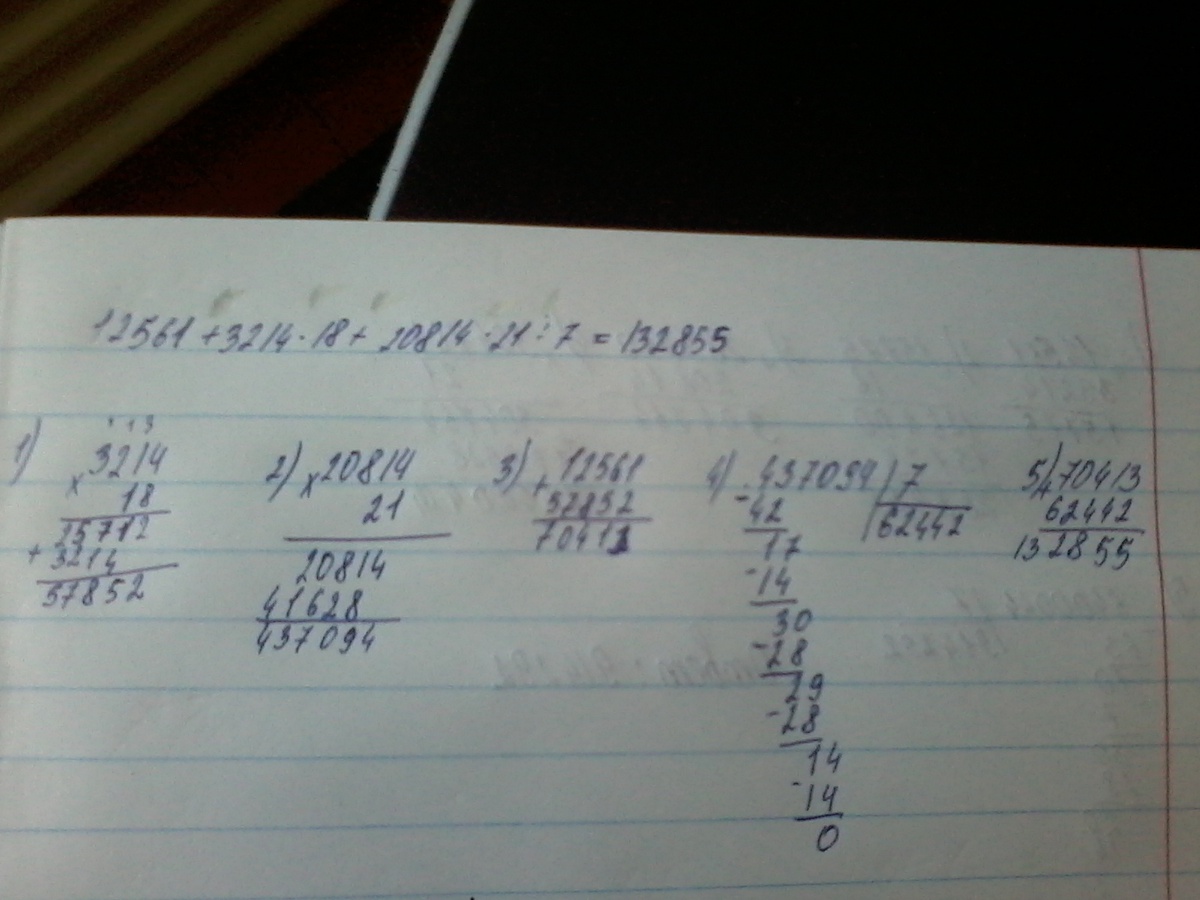 12561 + 3214 · 18 + 20814 · 21 : 7 = 132855
1)
3214
x
18
25712
+ 3214
57852
2) x 20814
21
20814
41628
437094
3) + 12561
57852
70413
4) 437094 | 7
- 42 | 62442
17
- 14
30
- 28
29
- 28
14
- 14
0
5) + 70413
62442
132855